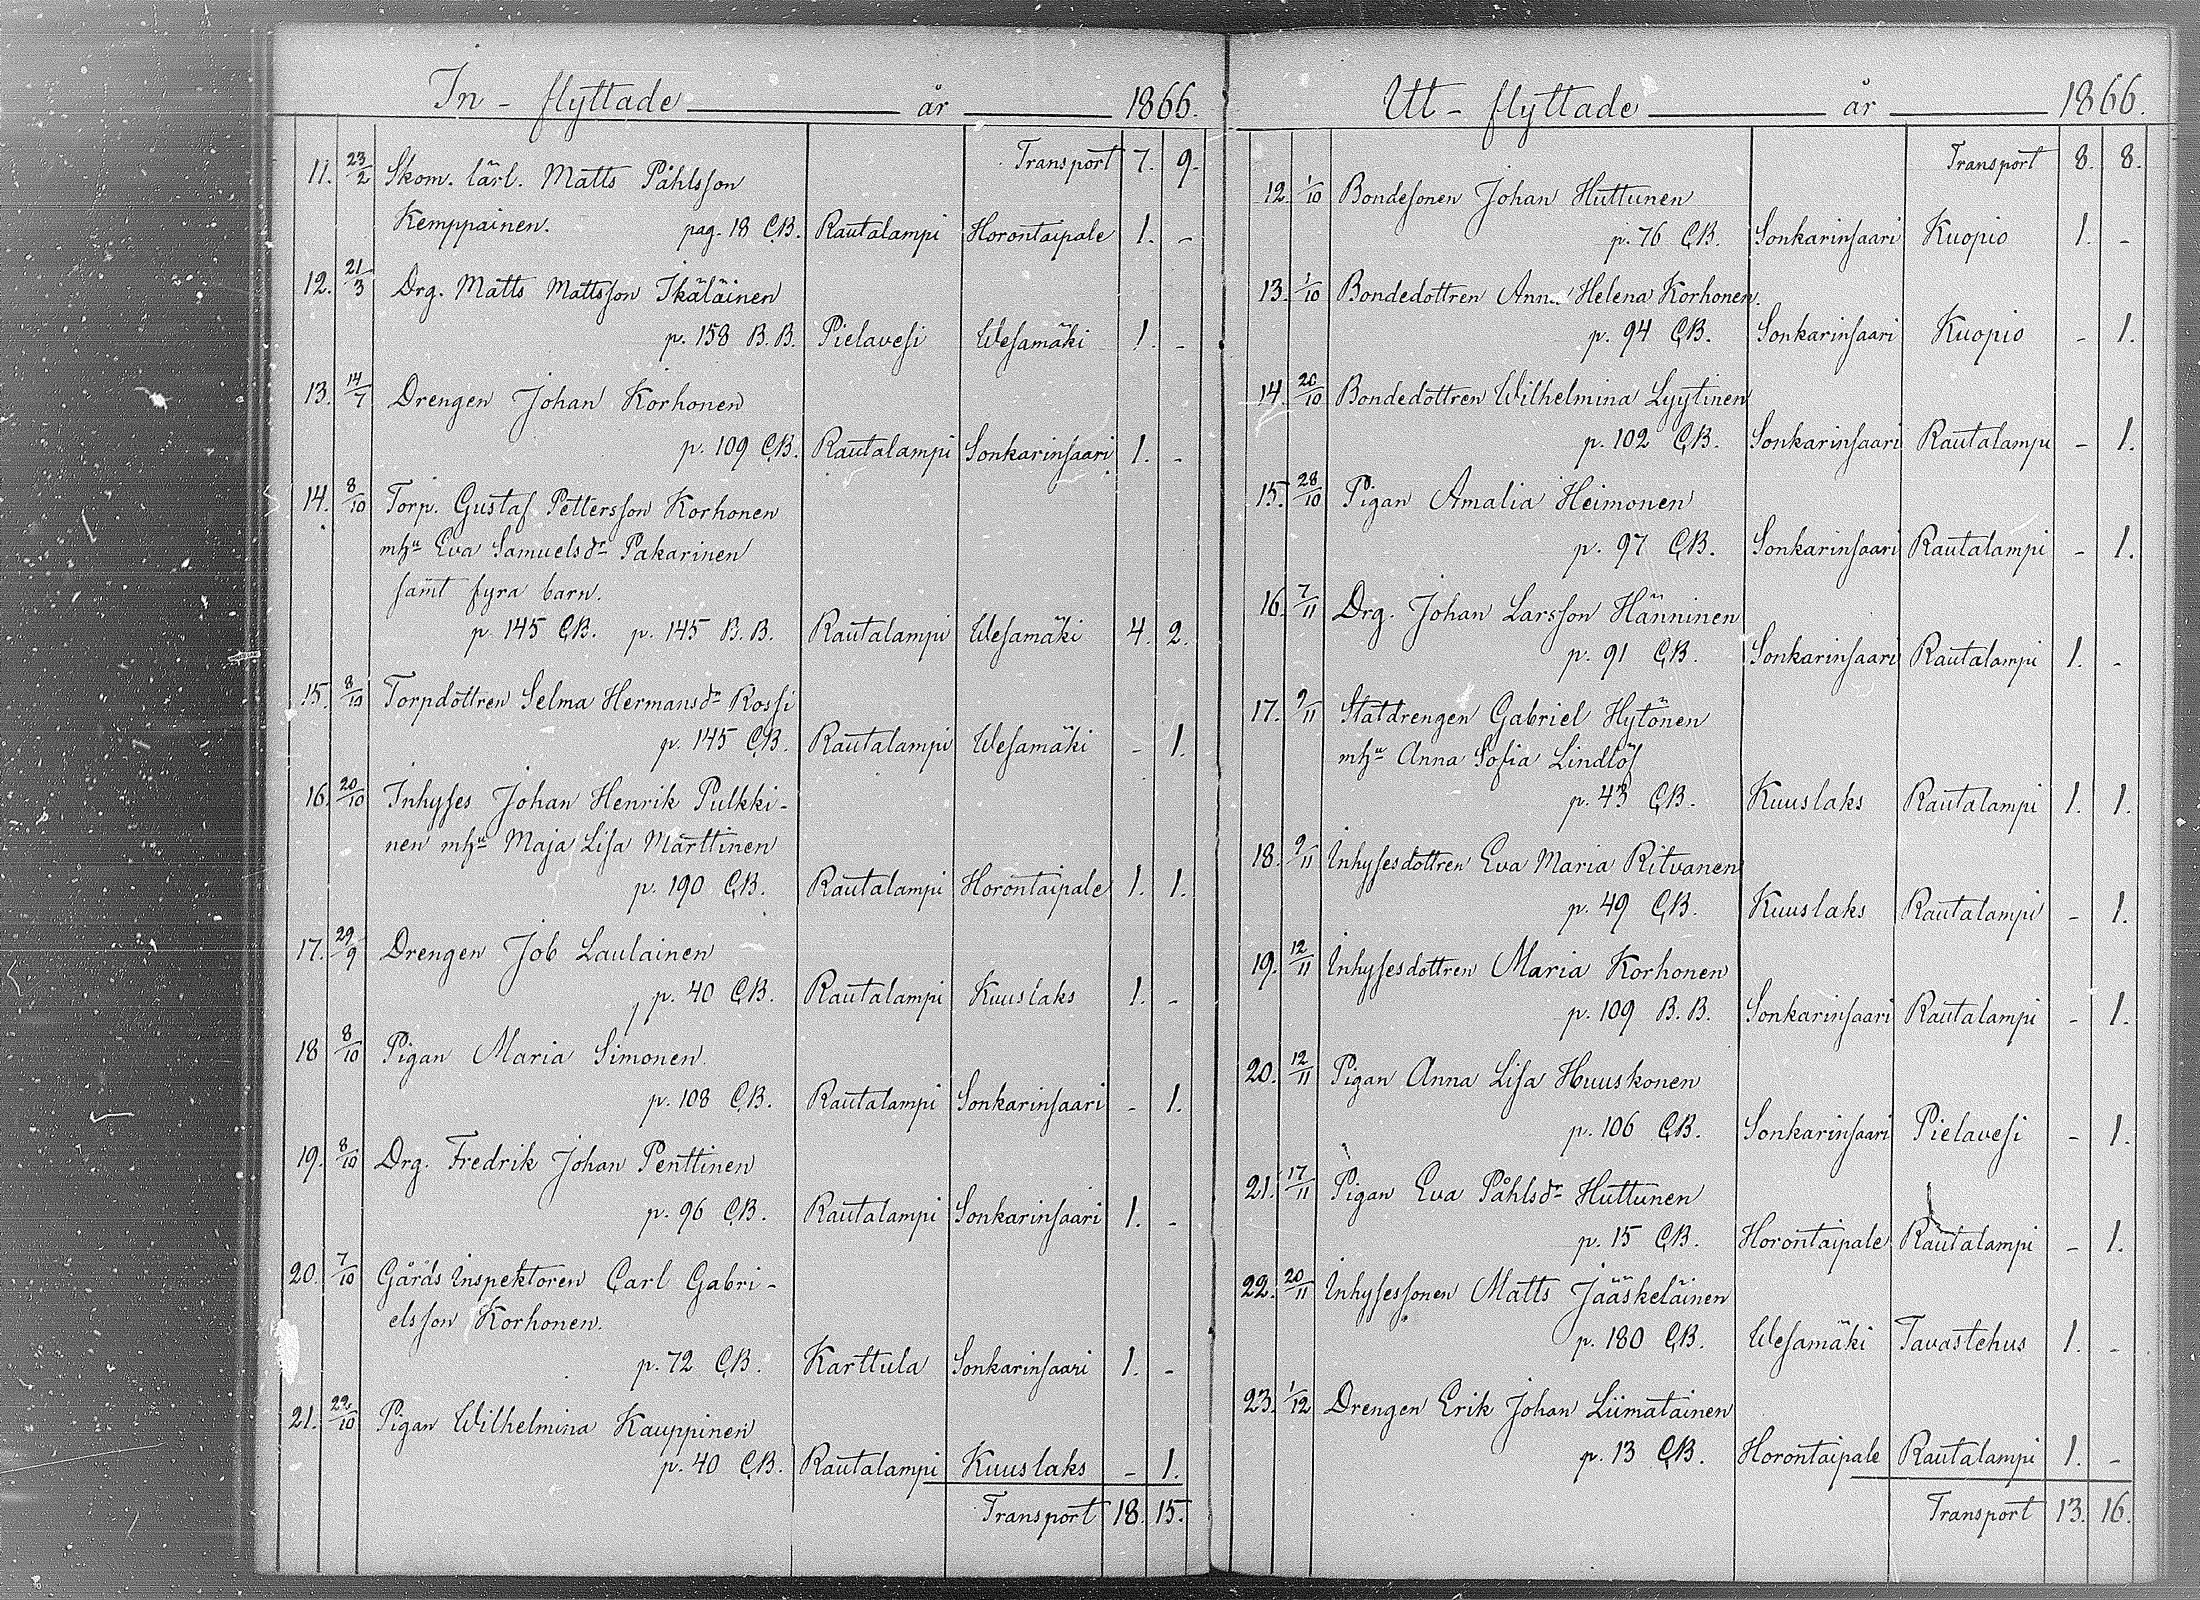 In - flyttade år 1866.
Transport 7. 9.
11. 23/2 Skom. lärl. Matts Påhlsson
Kemppainen. pag. 18 C.B. Rautalampi Horontaipale 1. -
12. 21/3 Drg. Matts Mattsson Ikäläinen
p. 158 B.B. Pielavesi Wesamäki 1. -
13. 14/7 Drengen Johan Korhonen
p. 109 C.B. Rautalampi Sonkarinsaari 1. -
14. 8/10 Torp. Gustaf Pettersson Korhonen
mhu Eva Samuelsdr Pakarinen
samt fyra barn.
p. 145 C.B. p. 145 B.B. Rautalampi Wesamäki 4. 2.
15. 8/10 Torpdottren Selma Hermansdr Rossi
p. 145 C.B. Rautalampi Wesamäki - 1.
16. 20/10 Inhyses Johan Henrik Pulkki-
nen mhu Maja Lisa Marttinen
p. 190 C.B. Rautalampi Horontaipale 1. 1.
17. 29/9 Drengen Job Laulainen
p. 40 C.B. Rautalampi Kuuslaks 1. -
18 8/10 Pigan Maria Simonen.
p. 108 C.B. Rautalampi Sonkarinsaari - 1.
19. 8/10 Drg. Fredrik Johan Penttinen
p. 96 C.B. Rautalampi Sonkarinsaari 1. -
20. 7/10 Gårds Inspektoren Carl Gabri-
elsson Korhonen.
p. 72 C.B. Karttula Sonkarinsaari 1. -
21. 22/10 Pigan Wilhelmina Kauppinen
p. 40 C.B. Rautalampi Kuuslaks - 1.
Transport 18. 15.
Ut - flyttade år 1866.
Transport 8. 8.
12. 1/10 Bondesonen Johan Huttunen
p. 76 C.B. Sonkarinsaari Kuopio 1. -
13. 1/10 Bondedottren Anna Helena Korhonen.
p. 94 C.B. Sonkarinsaari Kuopio - 1.
14. 20/10 Bondedottren Wilhelmina Lyytinen
p. 102 C.B. Sonkarinsaari Rautalampi - 1.
15. 28/10 Pigan Amalia Heimonen
p. 97 C.B. Sonkarinsaari Rautalampi - 1.
16. 7/11 Drg. Johan Larsson Hänninen
p. 91 C.B. Sonkarinsaari Rautalampi 1. -
17. 9/11 Statdrengen Gabriel Hytönen
mhu Anna Sofia Lindlöf
p. 43 C.B. Kuuslaks Rautalampi 1. 1.
18. 9/11 Inhysesdottren Eva Maria Ritvanen
p. 49 C.B. Kuuslaks Rautalampi - 1.
19. 12/11 Inhysesdottren Maria Korhonen
p. 109 B.B. Sonkarinsaari Rautalampi - 1.
20. 12/11 Pigan Anna Lisa Huuskonen
p. 106 C.B. Sonkarinsaari Pielavesi - 1.
21. 17/11 Pigan Eva Påhlsdr Huttunen
p. 15 C.B. Horontaipale Rautalampi - 1.
22. 20/11 Inhysessonen Matts Jääskeläinen
p. 180 C.B. Wesamäki Tavastehus 1. -
23. 1/12 Drengen Erik Johan Liimatainen
p. 13 C.B. Horontaipale Rautalampi 1. -
Transport 13. 16.